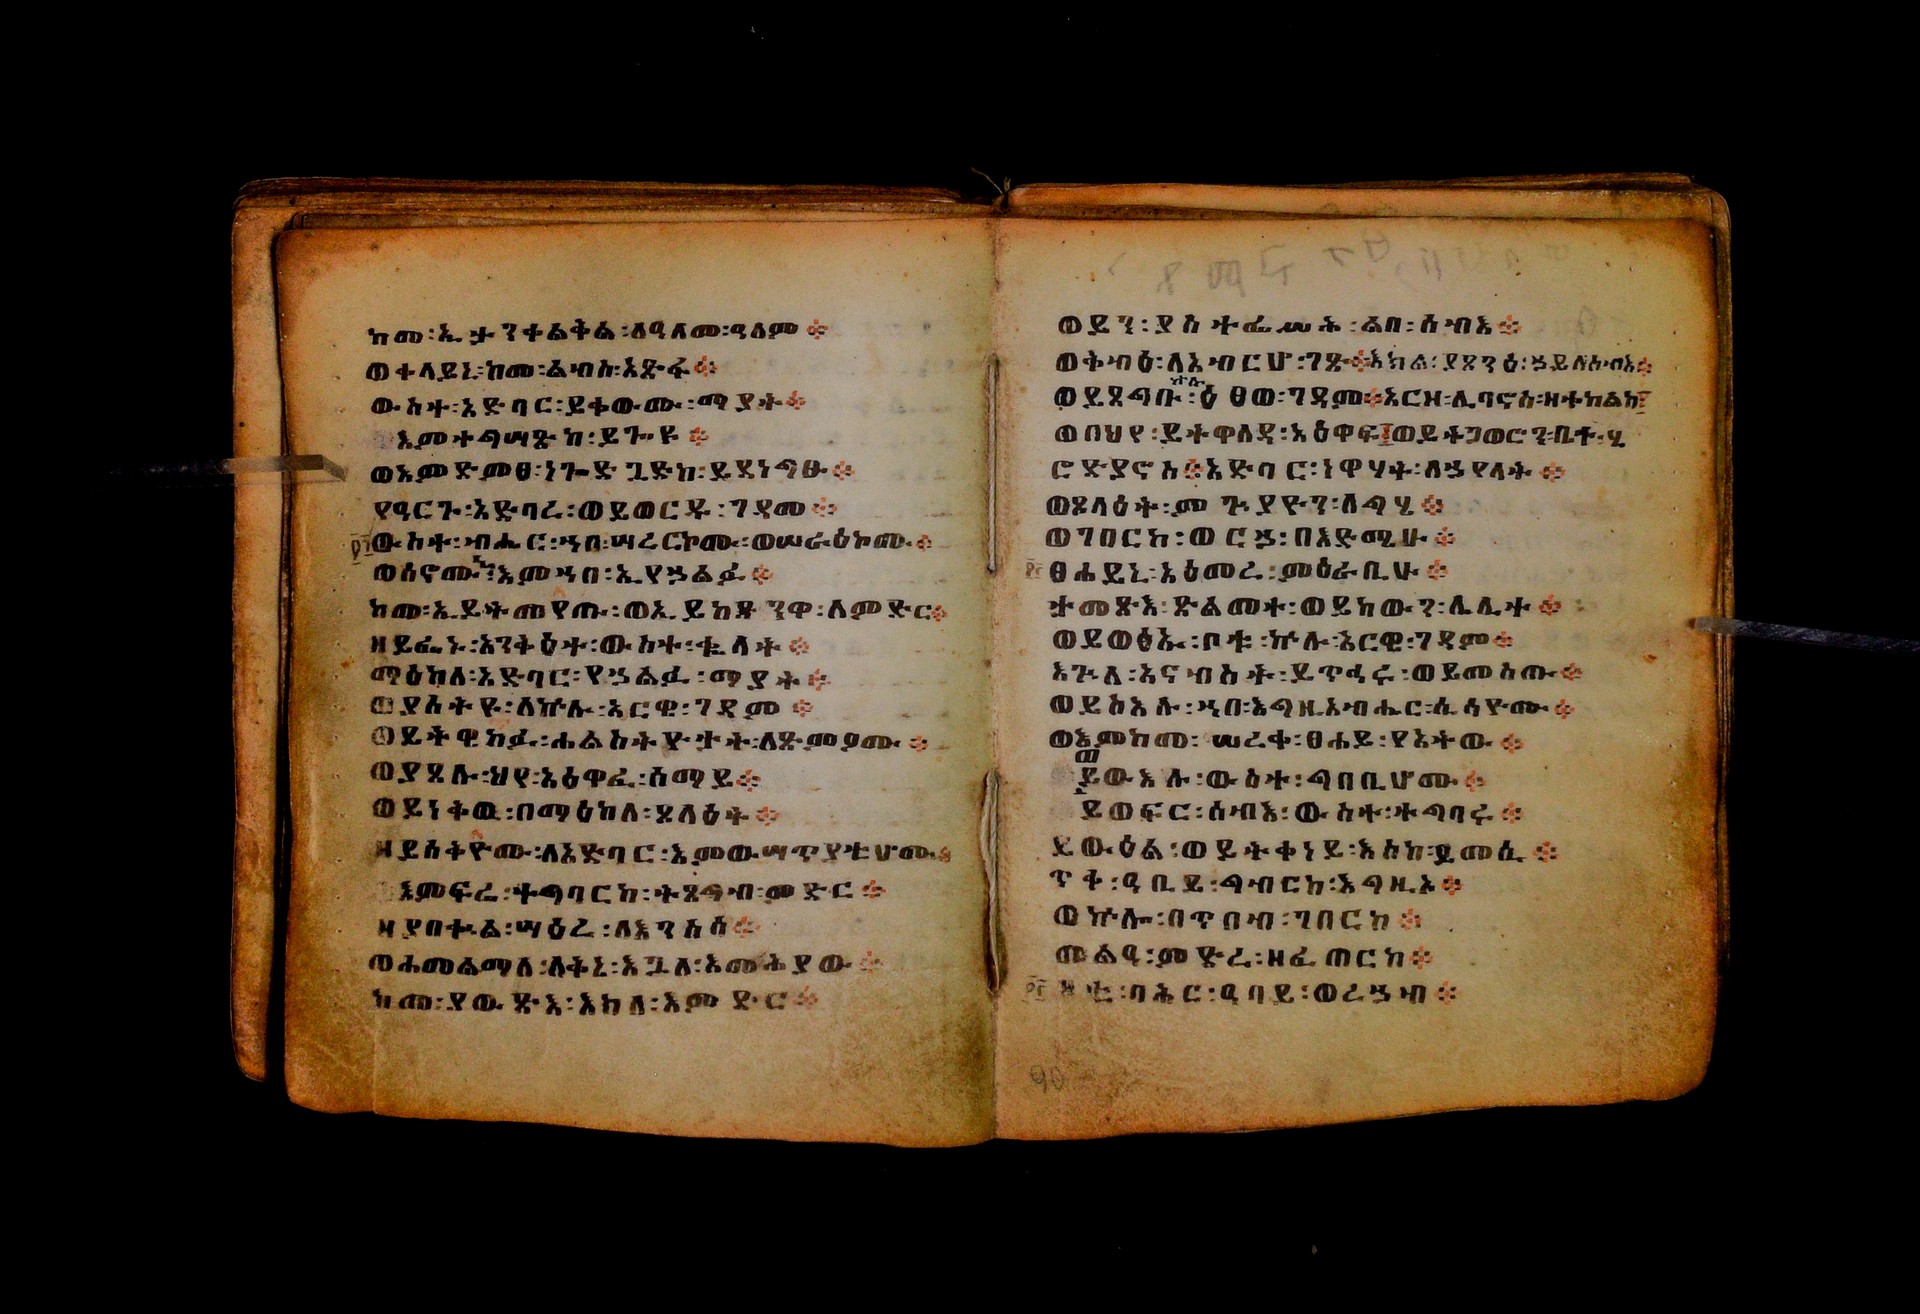 ከመ፡ኢታንቀልቅል፡ለዓለመ፡ዓለም፨
ወቀላይኒ፡ከመ፡ልብስ፡እጽፋ፨
ውስተ፡አድባር፡ይቀውሙ፡ማያት፨
እምተግሣጽከ፡ይጐዩ፨
ወእምድምፀ፡ነጐድጓድከ፡ይደነግፁ፨
የዓርጉ፡አድባረ፡ወይወርዱ፡ገዳመ፨
ውስተ፡ብሔር፡ኀበ፡ሣረርኮሙ፡ወሠራዕኮሙ፨
ወሰኖሙ፡እምኀበ፡ኢየኀልፉ፨
ከመ፡ኢይትመየጡ፡ወኢይከድንዋ፡ለምድር፨
ዘይፌኑ፡አንቅዕተ፡ውስተ፡ቈላት፨
ማዕከለ፡አድባር፡የኀልፉ፡ማያት፨
ወያሰትዩ፡ለኵሉ፡አርዌ፡ገዳም፨
ወይትዌከፉ፡ሐለስትዮታት፡ለጽምዖሙ፨
ወያጸልሉ፡ህየ፡አዕዋፈ፡ሰማይ፨
ወይነቅዉ፡በማዕከለ፡ጸላዕት፨
ዘይሰቅዮሙ፡ለአድባር፡እምውሣጥያቲሆሙ፨
እምፍሬ፡ተግባርከ፡ትጸግብ፡ምድር፨
ዘያበቍል፡ሣዕረ፡ለእንስሳ፨
ወሐመልማለ፡ለቅኔ፡እጓለ፡እመሕያው፨
ከመ፡ያውጽእ፡እክለ፡እምድር፨
ወይን፡ያስተፌሥሕ፡ልበ፡ሰብእ፨
ወቅብዕ፡ለአብርሆ፡ገጽ፨እክል፡ያጸንዕ፡ኀይለ፡ሰብእ፨
ወይጸግቡ፡ኵሉ፡ዕፀወ፡ገዳም፨አርዘ፡ሊባኖስ፡ዘተከልከ፨
ወበህየ፡ይትዋለዳ፡አዕዋፍ፨ወይቶጋወሮን፡ቤተ፡ሄ
ሮድያኖስ፨አድባር፡ነዋኃት፡ለኀየላት፨
ወጸላዕት፡ምጕያዮን፡ለግሄ፨
ወገበርከ፡ወርኀ፡በእድሜሁ፨
ፀሐይኒ፡አዕመረ፡ምዕራቢሁ፨
ታመጽእ፡ጽልመተ፡ወይከውን፡ሌሊተ፨
ወይወፅኡ፡ቦቱ፡ኵሉ፡አርዌ፡ገዳም፨
እጕለ፡አናብስት፡ይጥሕሩ፡ወይመስጡ፨
ወይስእሉ፡ኀበ፡እግዚአብሔር፡ሲሳዮሙ፨
ወእምከመ፡ሠረቀ፡ፀሐይ፡የአትው፨
ወይውእሉ፡ውስተ፡ግበቢሆሙ፨
ይወፍር፡ሰብእ፡ውስተ፡ተግባሩ፨
ይውዕል፡ወይትቀነይ፡እስከ፡ይመሲ፨
ጥቀ፡ዓቢይ፡ግብርከ፡እግዚኦ፨
ወኵሎ፡በጥበብ፡ገበርከ፨
መልዓ፡ምድረ፡ዘፈጠርከ፨
ዛቲ፡ባሕር፡ዓባይ፡ወረኃብ፨
90